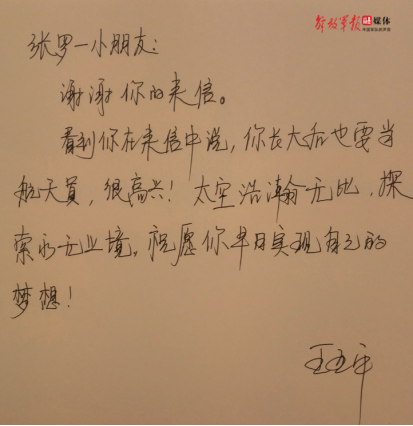 解放军报融媒体
中国军队的声音
张罗一小朋友：
谢谢你的来信。
看到你在来信中说，你长大后也要当
航天員，很高兴！太空浩瀚无比，探
索永无止境。祝愿你早日实现自己的
梦想！
王亚平